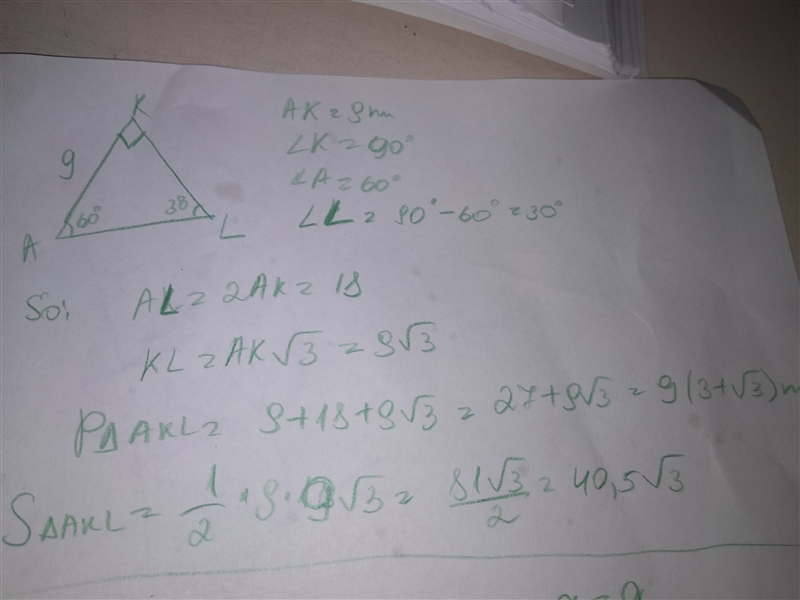 K
9
60°
30°
A
L
AK = 9m
∠K = 90°
∠A = 60°
∠L = 90° - 60° = 30°
So: AL = 2AK = 18
KL = AK√3 = 9√3
P△AKL = 9+18+9√3 = 27+9√3 = 9(3+√3)m
S△AKL = 1/2 · 9 · 9√3 = 81√3/2 = 40,5√3